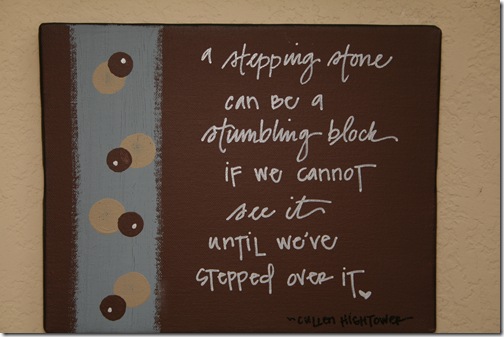 a stepping stone
can be a
stumbling block
if we cannot
see it
until we've
stepped over it.
~CULLEN HIGHTOWER